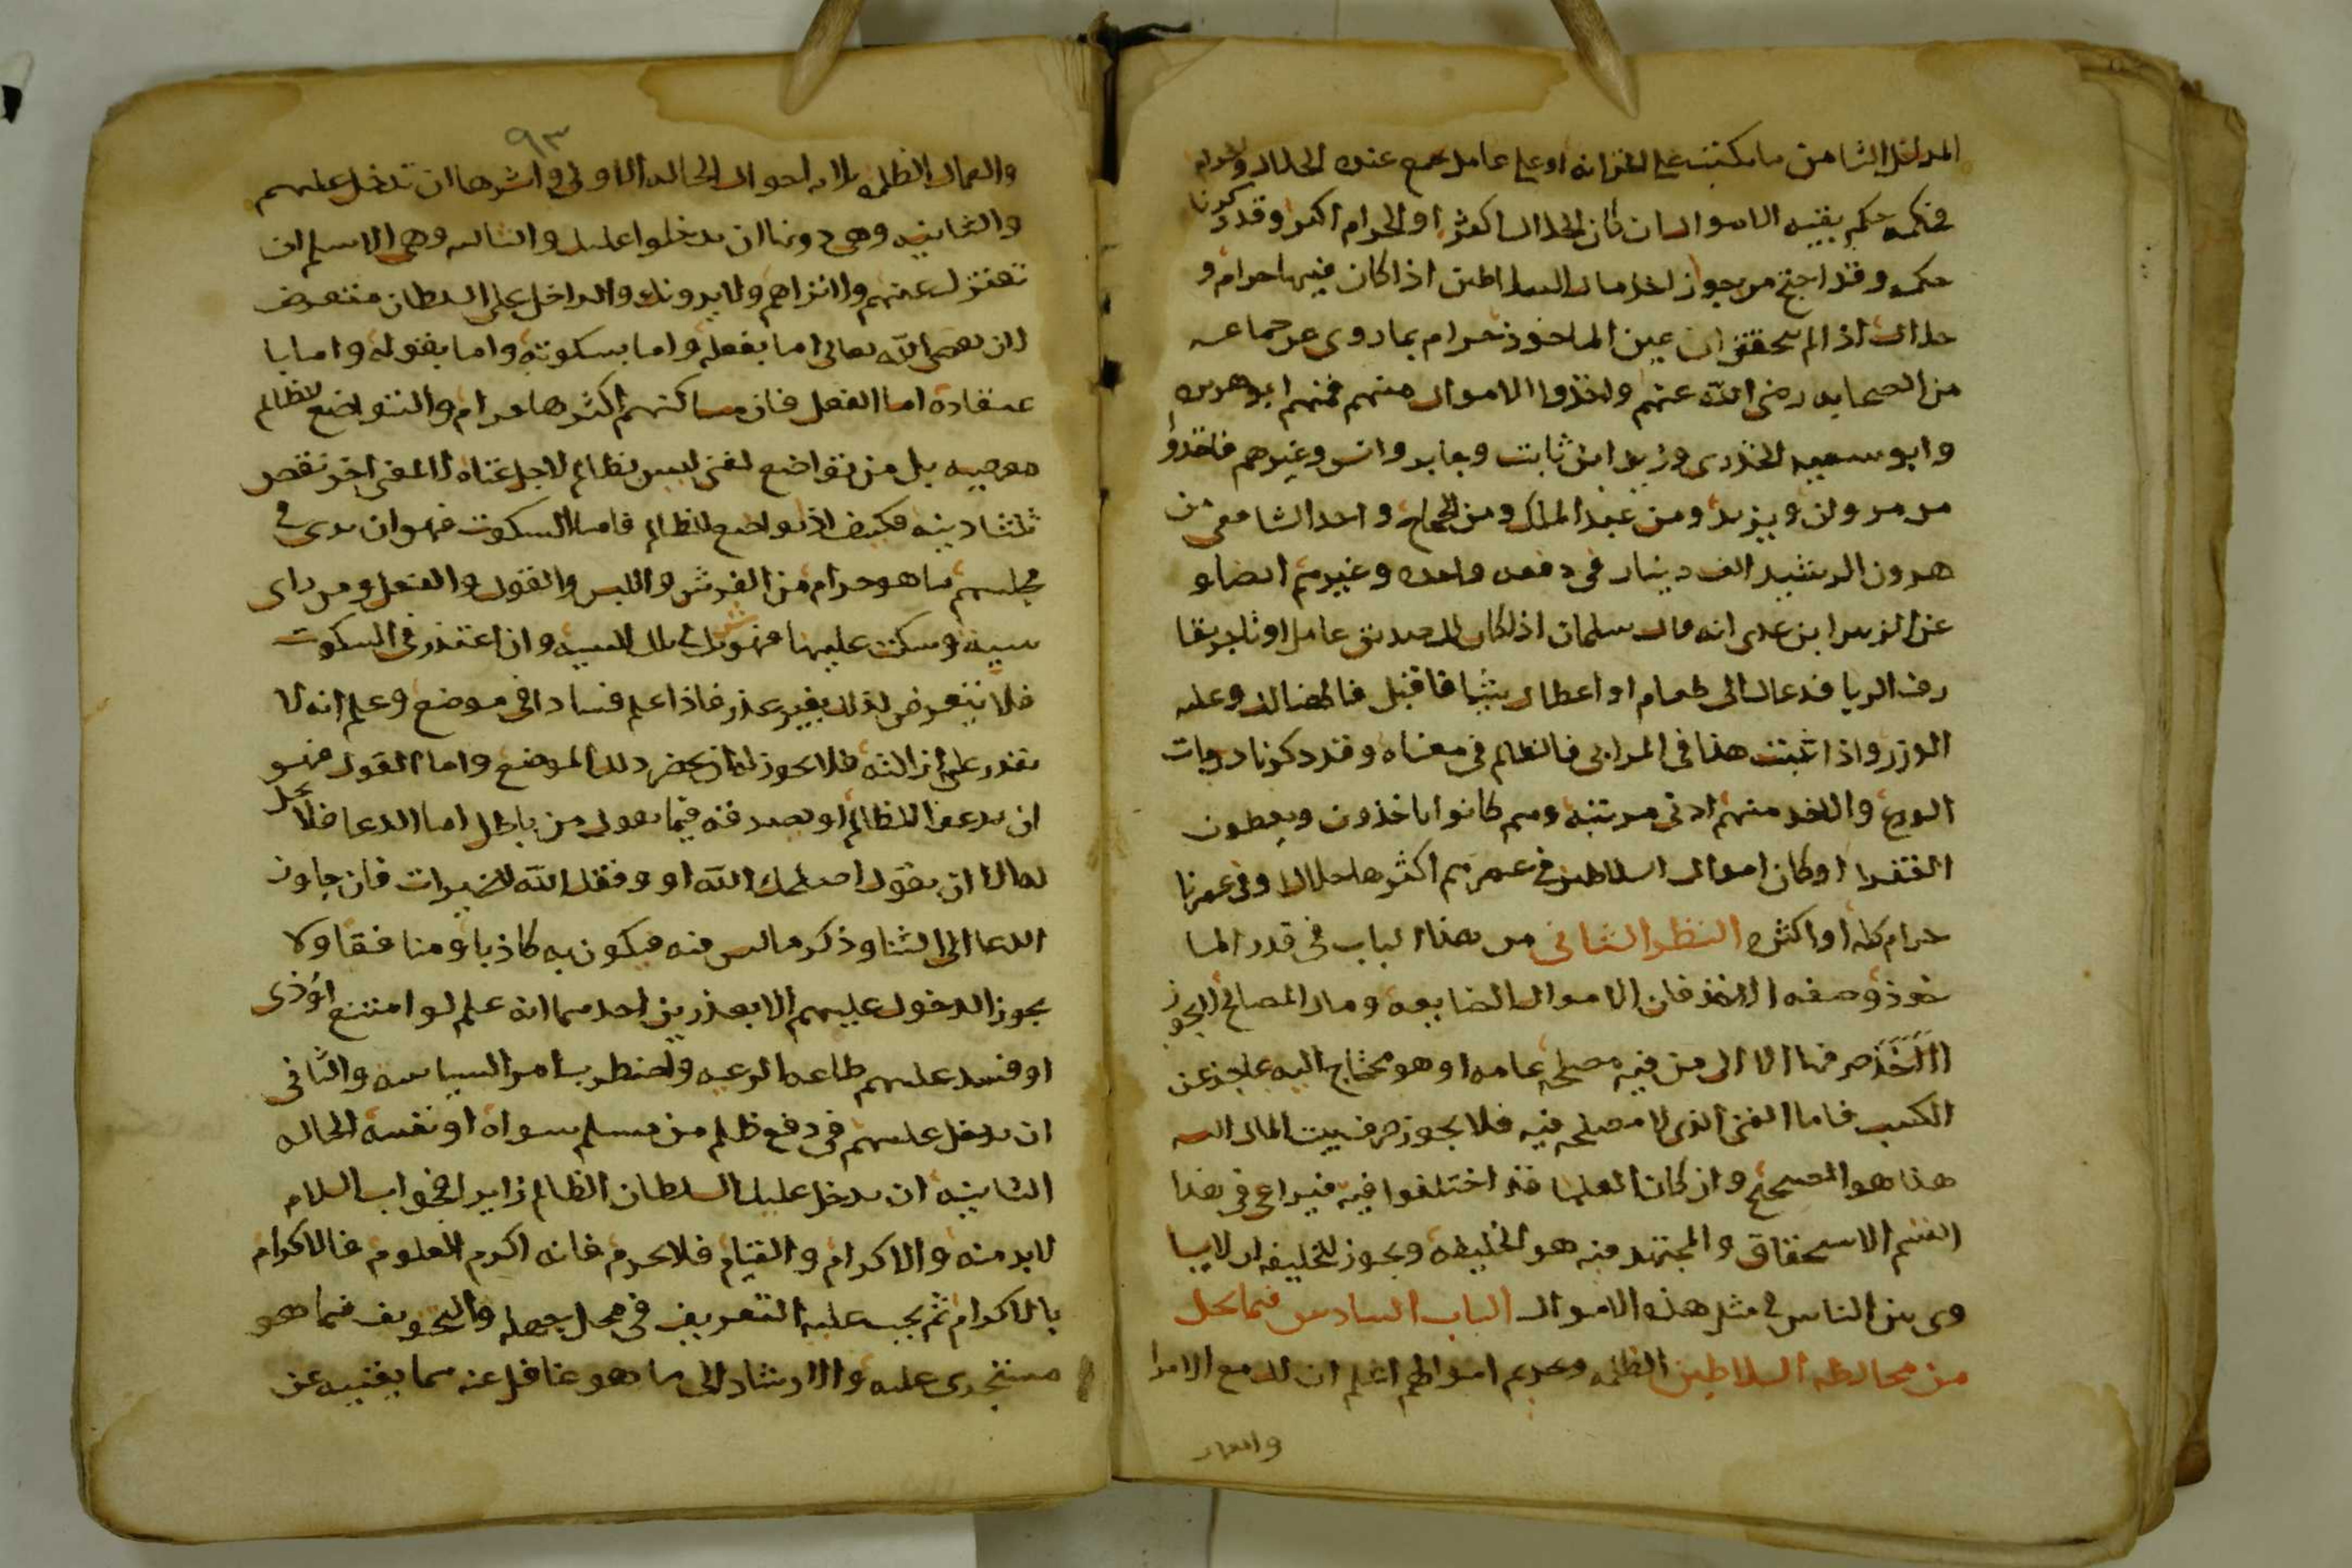 المدخل الثامن ما يكتب على الخزانه او على عامل يجمع عنده الحلال والحرام
فحكمه حكم بقيه الاموال ان كان الحلال اكثر او الحرام اكثر وقد ذكرنا
حكمه وقد احتج من جوز اخذ مال السلاطين اذا كان فيها حرام و
حلال اذا لم يتحقق ان عين الماخوذ حرام بما روى عن جماعه
من الصحابه رضى الله عنهم واخذوا الاموال منهم فمنهم ابو هريره
وابو سعيد الخدرى وزيد ابن ثابت وجابر وانس وغيرهم فاخذوا
من مروان ويزيد ومن عبد الملك ومن الحجاج واخذ الشافعى من
هرون الرشيد الف دينار فى دفعه واحده وغيرهم ايضا و
عن الزبير ابن عدى انه قال سلمان اذا كان لك صديق عامل او تاجر يقا
رف الربا فدعاك الى طعام او اعطاك شيا فاقبل فالهنا لك وعليه
الوزر واذا ثبت هذا فى المرابى فالظالم فى معناه وقد ذكرنا درجات
الورع والاخذ منهم ادنى مرتبه وهم كانوا ياخذون ويعطون
الفقرا او كان اموال السلاطين فى عصرهم اكثرها حلالا وفى عصرنا
حرام كله او اكثره النظر الثانى من هذا الباب فى قدر الما
خوذ وصفه الاخذ فان الاموال الضايعه ومال المصالح لا يجوز
صرفها الا الى من فيه مصلحه عامه او هو محتاج اليه عاجز عن
الكسب فاما الغنى الذى لا مصلحه فيه فلا يجوز صرف بيت المال اليه
هذا هو الصحيح وان كان العلما قد اختلفوا فيه فيراعى فى هذا
القسم الاستحقاق والمجتهد فيه هو الخليفه ويجوز للخليفه ان لا يسا
وى بين الناس فى مثل هذه الاموال الباب السادس فيما يحل
من مخالطه السلاطين الظلمه ويحرم احوالهم اعلم ان لك مع الامرا
والعمال
٩٣
والعمال الظلمه ثلاثه احوال الحاله الاولى واشرها ان تدخل عليهم
والثانيه وهى دونها ان يدخلوا عليك والثالثه وهى الاسلم ان
تعتزل عنهم ولا تراهم ولا يرونك والداخل على السلطان متعرض
لان يعصى الله تعالى اما بفعله واما بسكوته واما بقوله واما با
عتقاده اما الفعل فان مساكنهم اكثرها حرام والتواضع للظالم
معصيه بل من تواضع لغنى ليس بظالم لاجل غناه لا لمعنى اخر نقص
ثلثا دينه فكيف اذا تواضع للظالم فاما السكوت فهو ان يرى فى
مجلسهم ما هو حرام من الفرش واللبس والقول والفعل ومن راى
سيئه وسكت عليها فهو شريك فى تلك السيئه وان اعتذر فى السكوت
فلا يتعرض لذلك بغير عذر فاذا علم فسادا فى موضع وعلم انه لا
يقدر على ازالته فلا يجوز له ان يحضر ذلك الموضع واما القول فهو
ان يدعوا للظالم او يصدقه فيما يقول من باطل اما الدعا فلا يحل
له الا ان يقول اصلحك الله او وفقك الله للخيرات فان جاوز
الدعا الى الثنا وذكر ما ليس فيه فيكون به كاذبا ومنافقا ولا
يجوز الدخول عليهم الا بعذرين احدهما انه علم لو امتنع اوذى
او فسد عليهم طاعه الرعيه واضطرب امر السياسه والثانى
ان يدخل عليهم فى دفع ظلم من مسلم سواه او نفسه الحاله
الثانيه ان يدخل عليك السلطان الظالم زايرا فجواب السلام
لا بد منه والاكرام والقيام فلا يحرم فانه اكرم العلوم فالاكرام
بالاكرام ثم يجب عليه التعريف فى محل جهله والتخويف فيما هو
مستجرى عليه والارشاد الى ما هو غافل عنه مما يغنيه عن